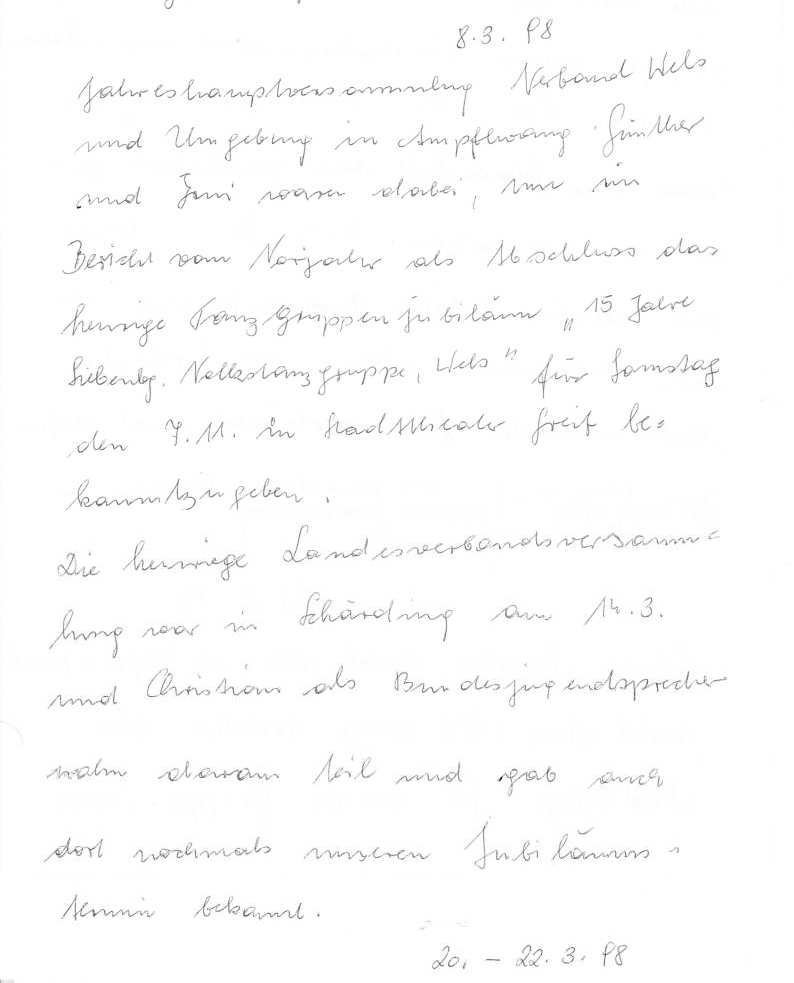 8.3. 98
Jahreshauptversammlung Verband Wels
und Umgebung in Ampflwang. Günther
und Jeni waren dabei, um im
Bericht vom Vorjahr als Abschluss das
heurige Tanzgruppenjubiläum „15 Jahre
Siebenbg. Volkstanzgruppe, Wels" für Samstag
den 7.11. in Stadttheater Greif be=
kanntzugeben.
Die heurige Landesverbandsversamm=
lung war in Schärding am 14.3.
und Christian als Bundesjugendsprecher
nahm daran teil und gab auch
dort nochmals unseren Jubiläums-
termin bekannt.
20. - 22. 3. 98